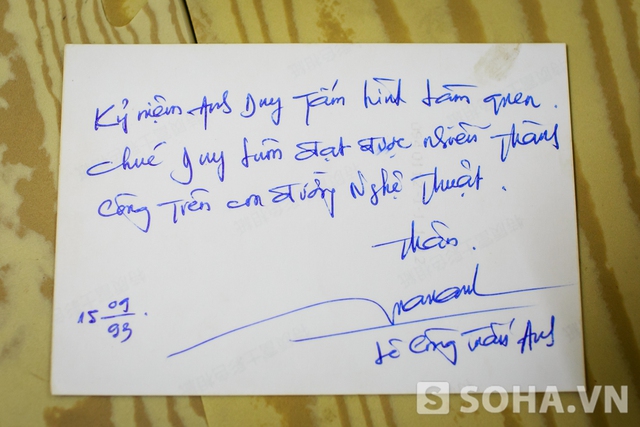 Kỷ niệm Anh Duy Tấm hình làm quen.
Chúc Duy luôn đạt được nhiều Thành
Công Trên con đường Nghệ Thuật.
Thân.
15 09
93
Lê Công Tuấn Anh
SOHA.VN